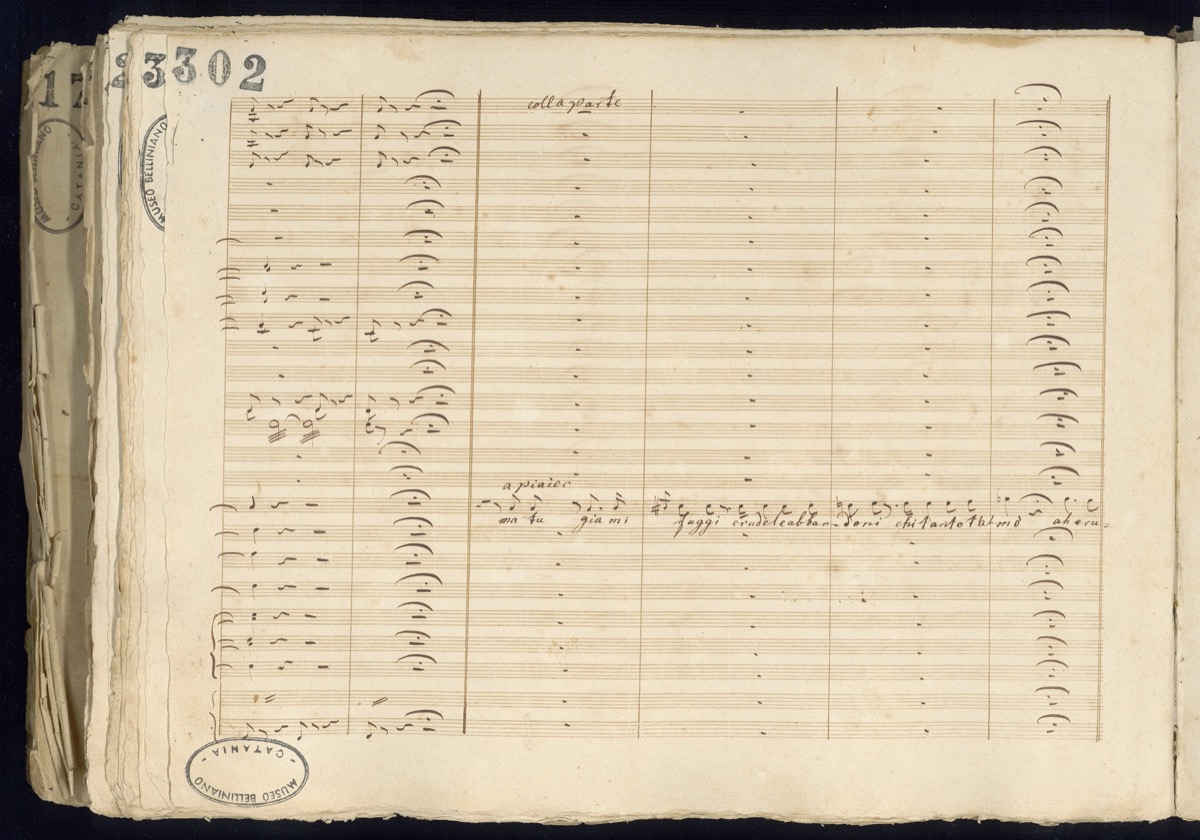 3302
MUSEO BELLINIANO
CATANIA
MUSEO BELLINIANO
colla parte
a piacer
ma tu gia mi fuggi crudele abban-doni chi tanto t'amò ah cru=
MUSEO BELLINIANO
- CATANIA -